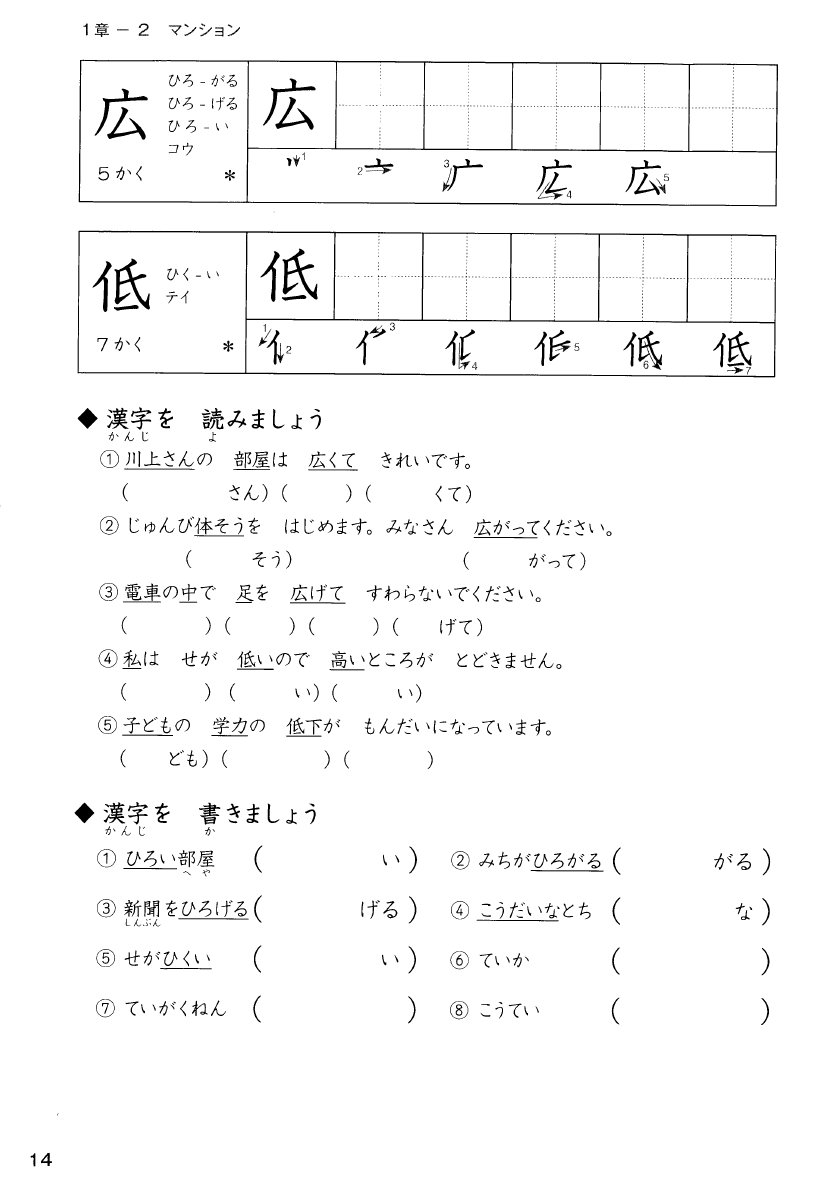 1章 － 2　マンション
広
ひろ - がる
ひろ - げる
ひろ - い
コウ
5かく　＊
広
1 2 3 4 5
低
ひく - い
テイ
7かく　＊
低
1 2 3 4 5 6 7
◆ 漢字を　読みましょう
かんじ　よ
① 川上さんの　部屋は　広くて　きれいです。
(　　　さん) (　　　) (　　　くて)
② じゅんび体そうを　はじめます。みなさん　広がってください。
(　　　そう)　(　　　がって)
③ 電車の中で　足を　広げて　すわらないでください。
(　　　) (　　　) (　　　) (　　　げて)
④ 私は　せが　低いので　高いところが　とどきません。
(　　　) (　　　い) (　　　い)
⑤ 子どもの　学力の　低下が　もんだいになっています。
(　　　ども) (　　　) (　　　)
◆ 漢字を　書きましょう
かんじ　か
① ひろい部屋 (　　　い)　② みちがひろがる (　　　がる)
へや
③ 新聞をひろげる (　　　げる)　④ こうだいなとち (　　　な)
しんぶん
⑤ せがひくい (　　　い)　⑥ ていか (　　　)
⑦ ていがくねん (　　　)　⑧ こうてい (　　　)
14